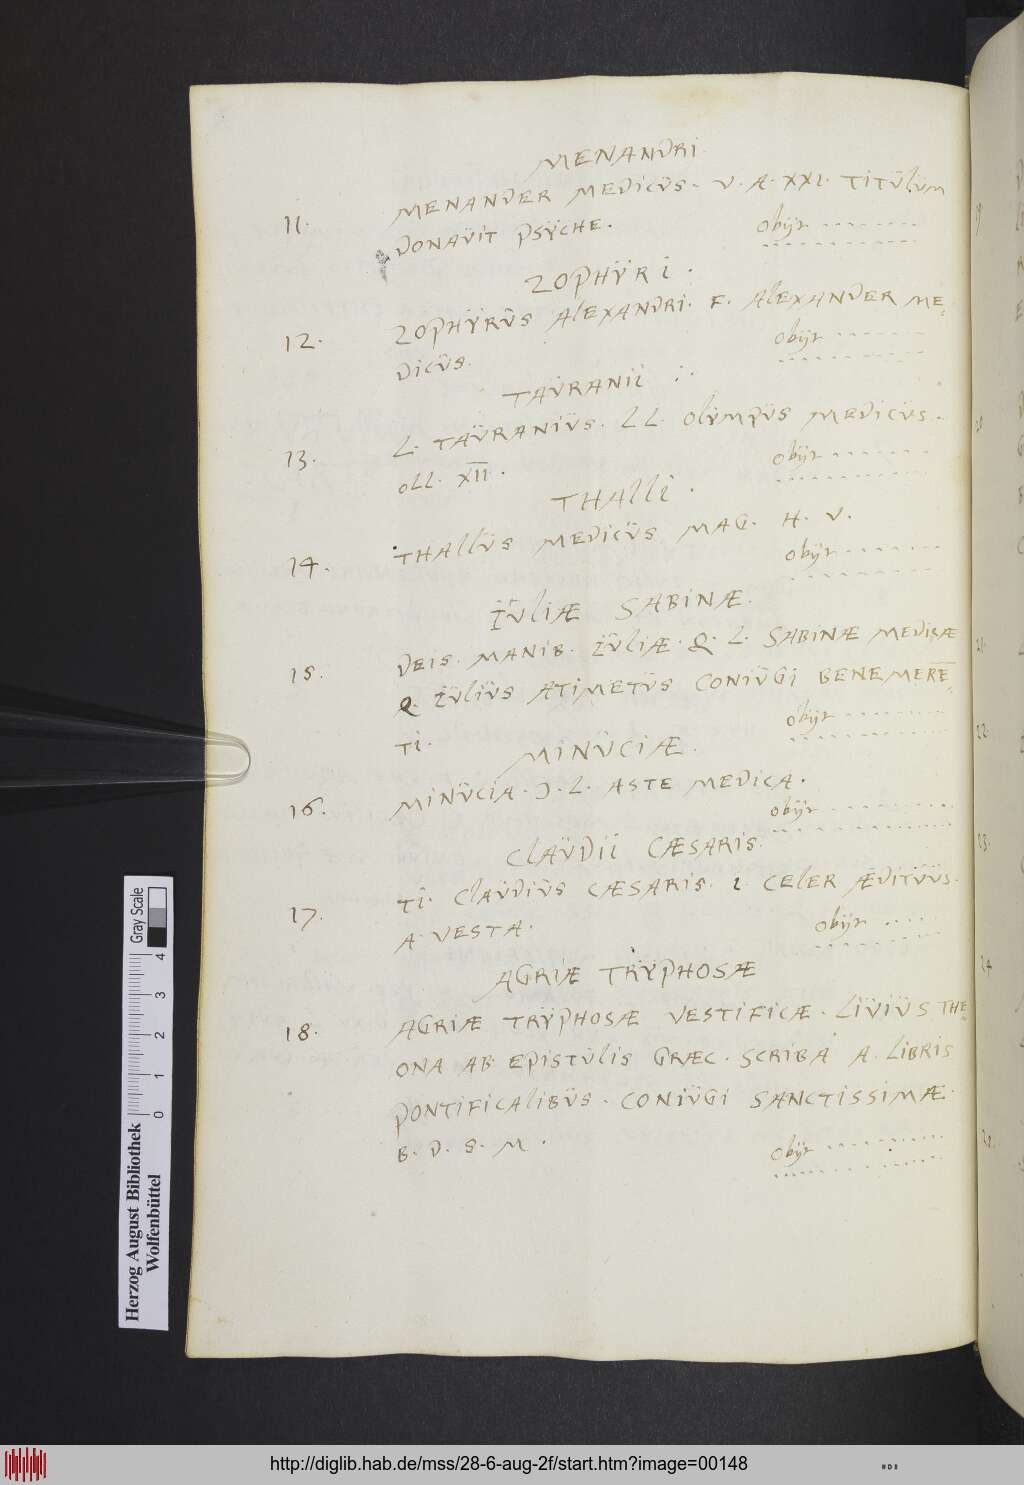 MENANDRI.
11. MENANDER MEDICÜS. V. A. XXI. TITÜLÜM
DONAÜIT PSÿCHE.
obijt ........
ZOPHÿRI.
12. ZOPHÿRÜS ALEXANDRI. F. ALEXANDER ME=
DICÜS.
obijt ........
TAÜRANII :.
13. L. TAÜRANIÜS. LL. OLÿMPÜS MEDICÜS.
OLL. XII.
obijt ........
THALLI.
14. THALLÜS MEDICÜS MAG. H. V.
obijt ........
IÜLIÆ SABINÆ.
15. DEIS. MANIB. IÜLIÆ. Q. L. SABINÆ MEDICÆ
Q. IÜLIÜS ATIMETÜS CONIÜGI BENEMERE=
TI.
obijt ........
MINÜCIÆ.
16. MINÜCIA. Ɔ. L. ASTE MEDICA.
obijt ........
CLAÜDII CÆSARIS.
17. TI. CLAÜDIÜS CÆSARIS. L. CELER ÆDITÜÜS.
A VESTA.
obijt ....
AGRIÆ TRÿPHOSÆ
18. AGRIÆ TRÿPHOSÆ VESTIFICÆ. LIÜIÜS THE=
ONA AB EPISTÜLIS GRÆC. SCRIBA A. LIBRIS
PONTIFICALIBÜS. CONIÜGI SANCTISSIMÆ.
B. D. S. M.
obijt ........
Gray Scale
0 1 2 3 4
Herzog August Bibliothek
Wolfenbüttel
http://diglib.hab.de/mss/28-6-aug-2f/start.htm?image=00148